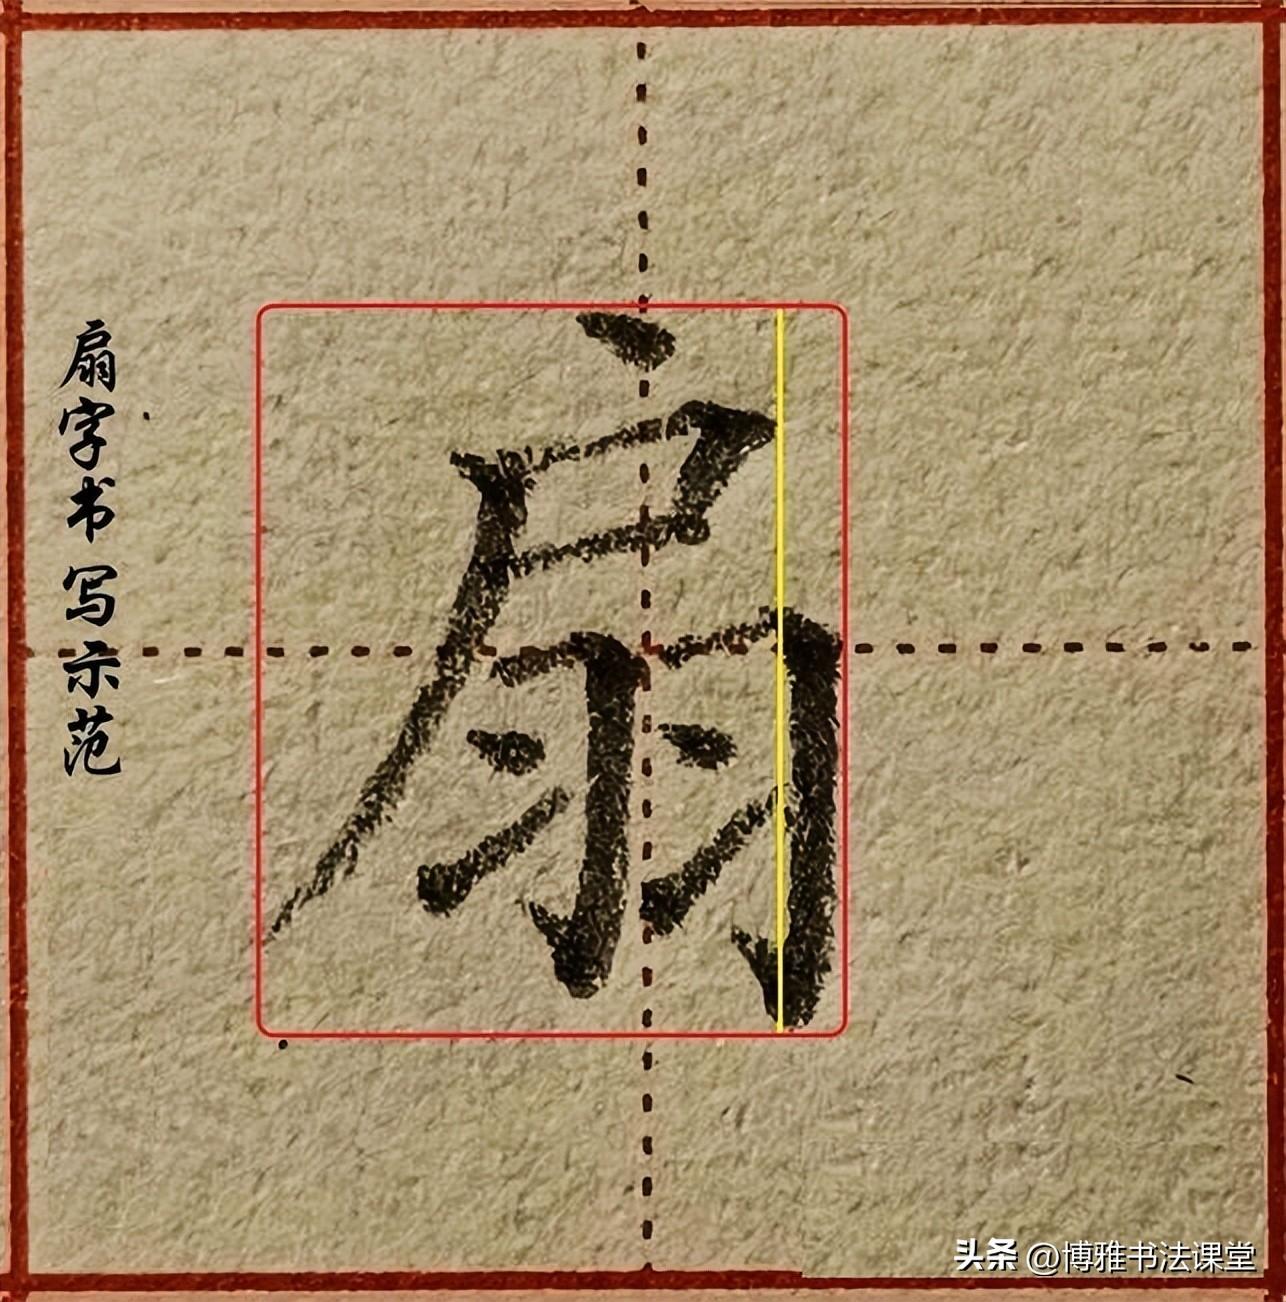 扇字书写示范
扇
头条 @博雅书法课堂